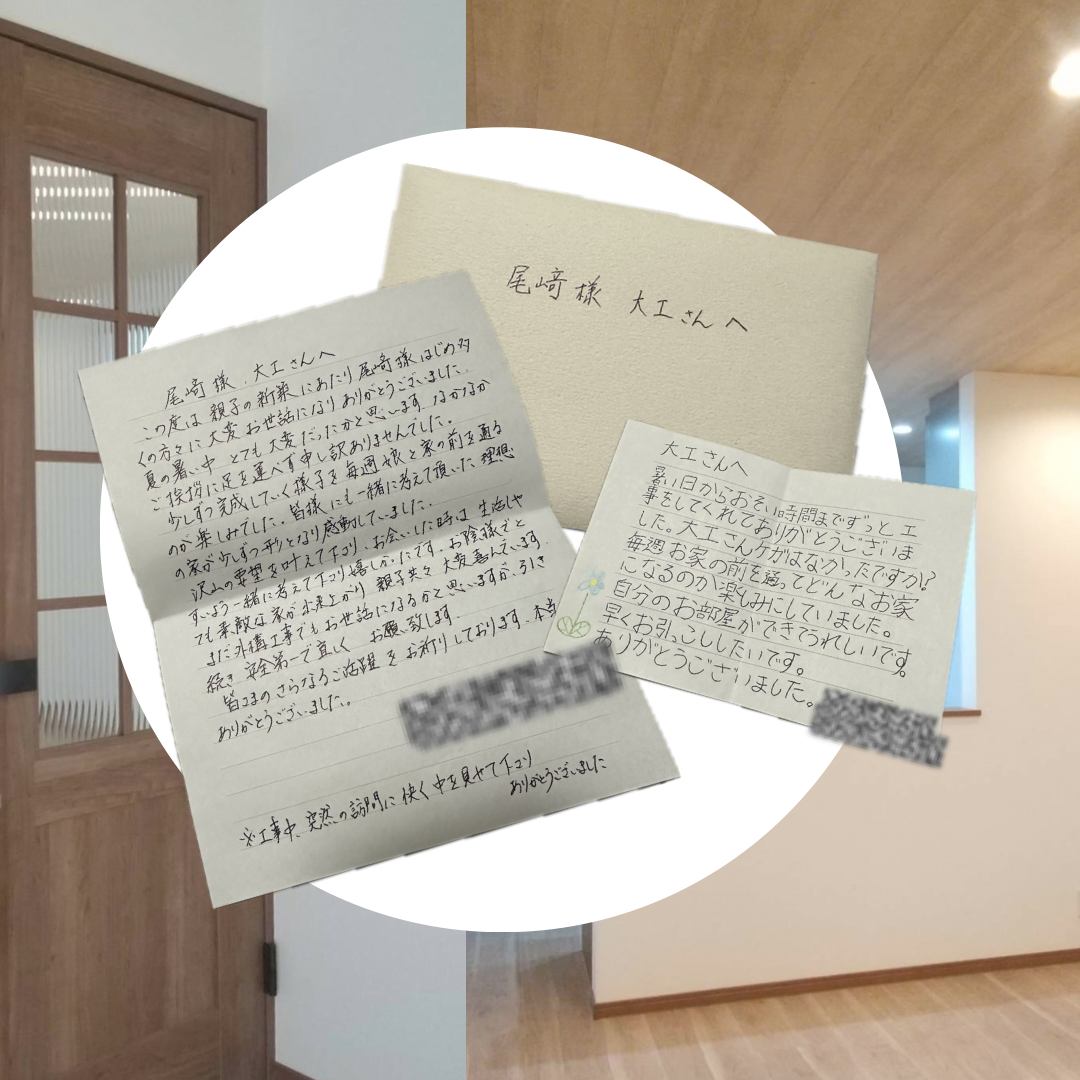 尾﨑様 大工さんへ
尾﨑様.大工さんへ
この度は親子の新築にあたり尾﨑様はじめ多
くの方々に大変お世話になりありがとうございました。
夏の暑い中とても大変だったかと思います。なかなか
ご挨拶に足を運べず申し訳ありませんでした。
少しずつ完成していく様子を毎週娘と家の前を通る
のが楽しみでした。皆様にも一緒に考えて頂いた理想
の家が少しずつ形となり感動していました。
沢山の要望を叶えて下さり、お会いした時は生活しや
すいよう一緒に考えて下さり嬉しかったです。お陰様でと
ても素敵な家が出来上がり親子共々大変喜んでいます。
また外構工事でもお世話になるかと思いますが、引き
続き安全第一で宜しくお願い致します。
皆さまのさらなるご活躍をお祈りしております。本当
ありがとうございました。
※工事中、突然の訪問に快く中を見せて下さり
ありがとうございました
大工さんへ
暑い日からおそい時間までずっと工
事をしてくれてありがとうございま
した。大工さんケガはなかったですか?
毎週お家の前を通ってどんなお家
になるのか楽しみにしていました。
自分のお部屋ができてうれしいです。
早くお引っこししたいです。
ありがとうございました。